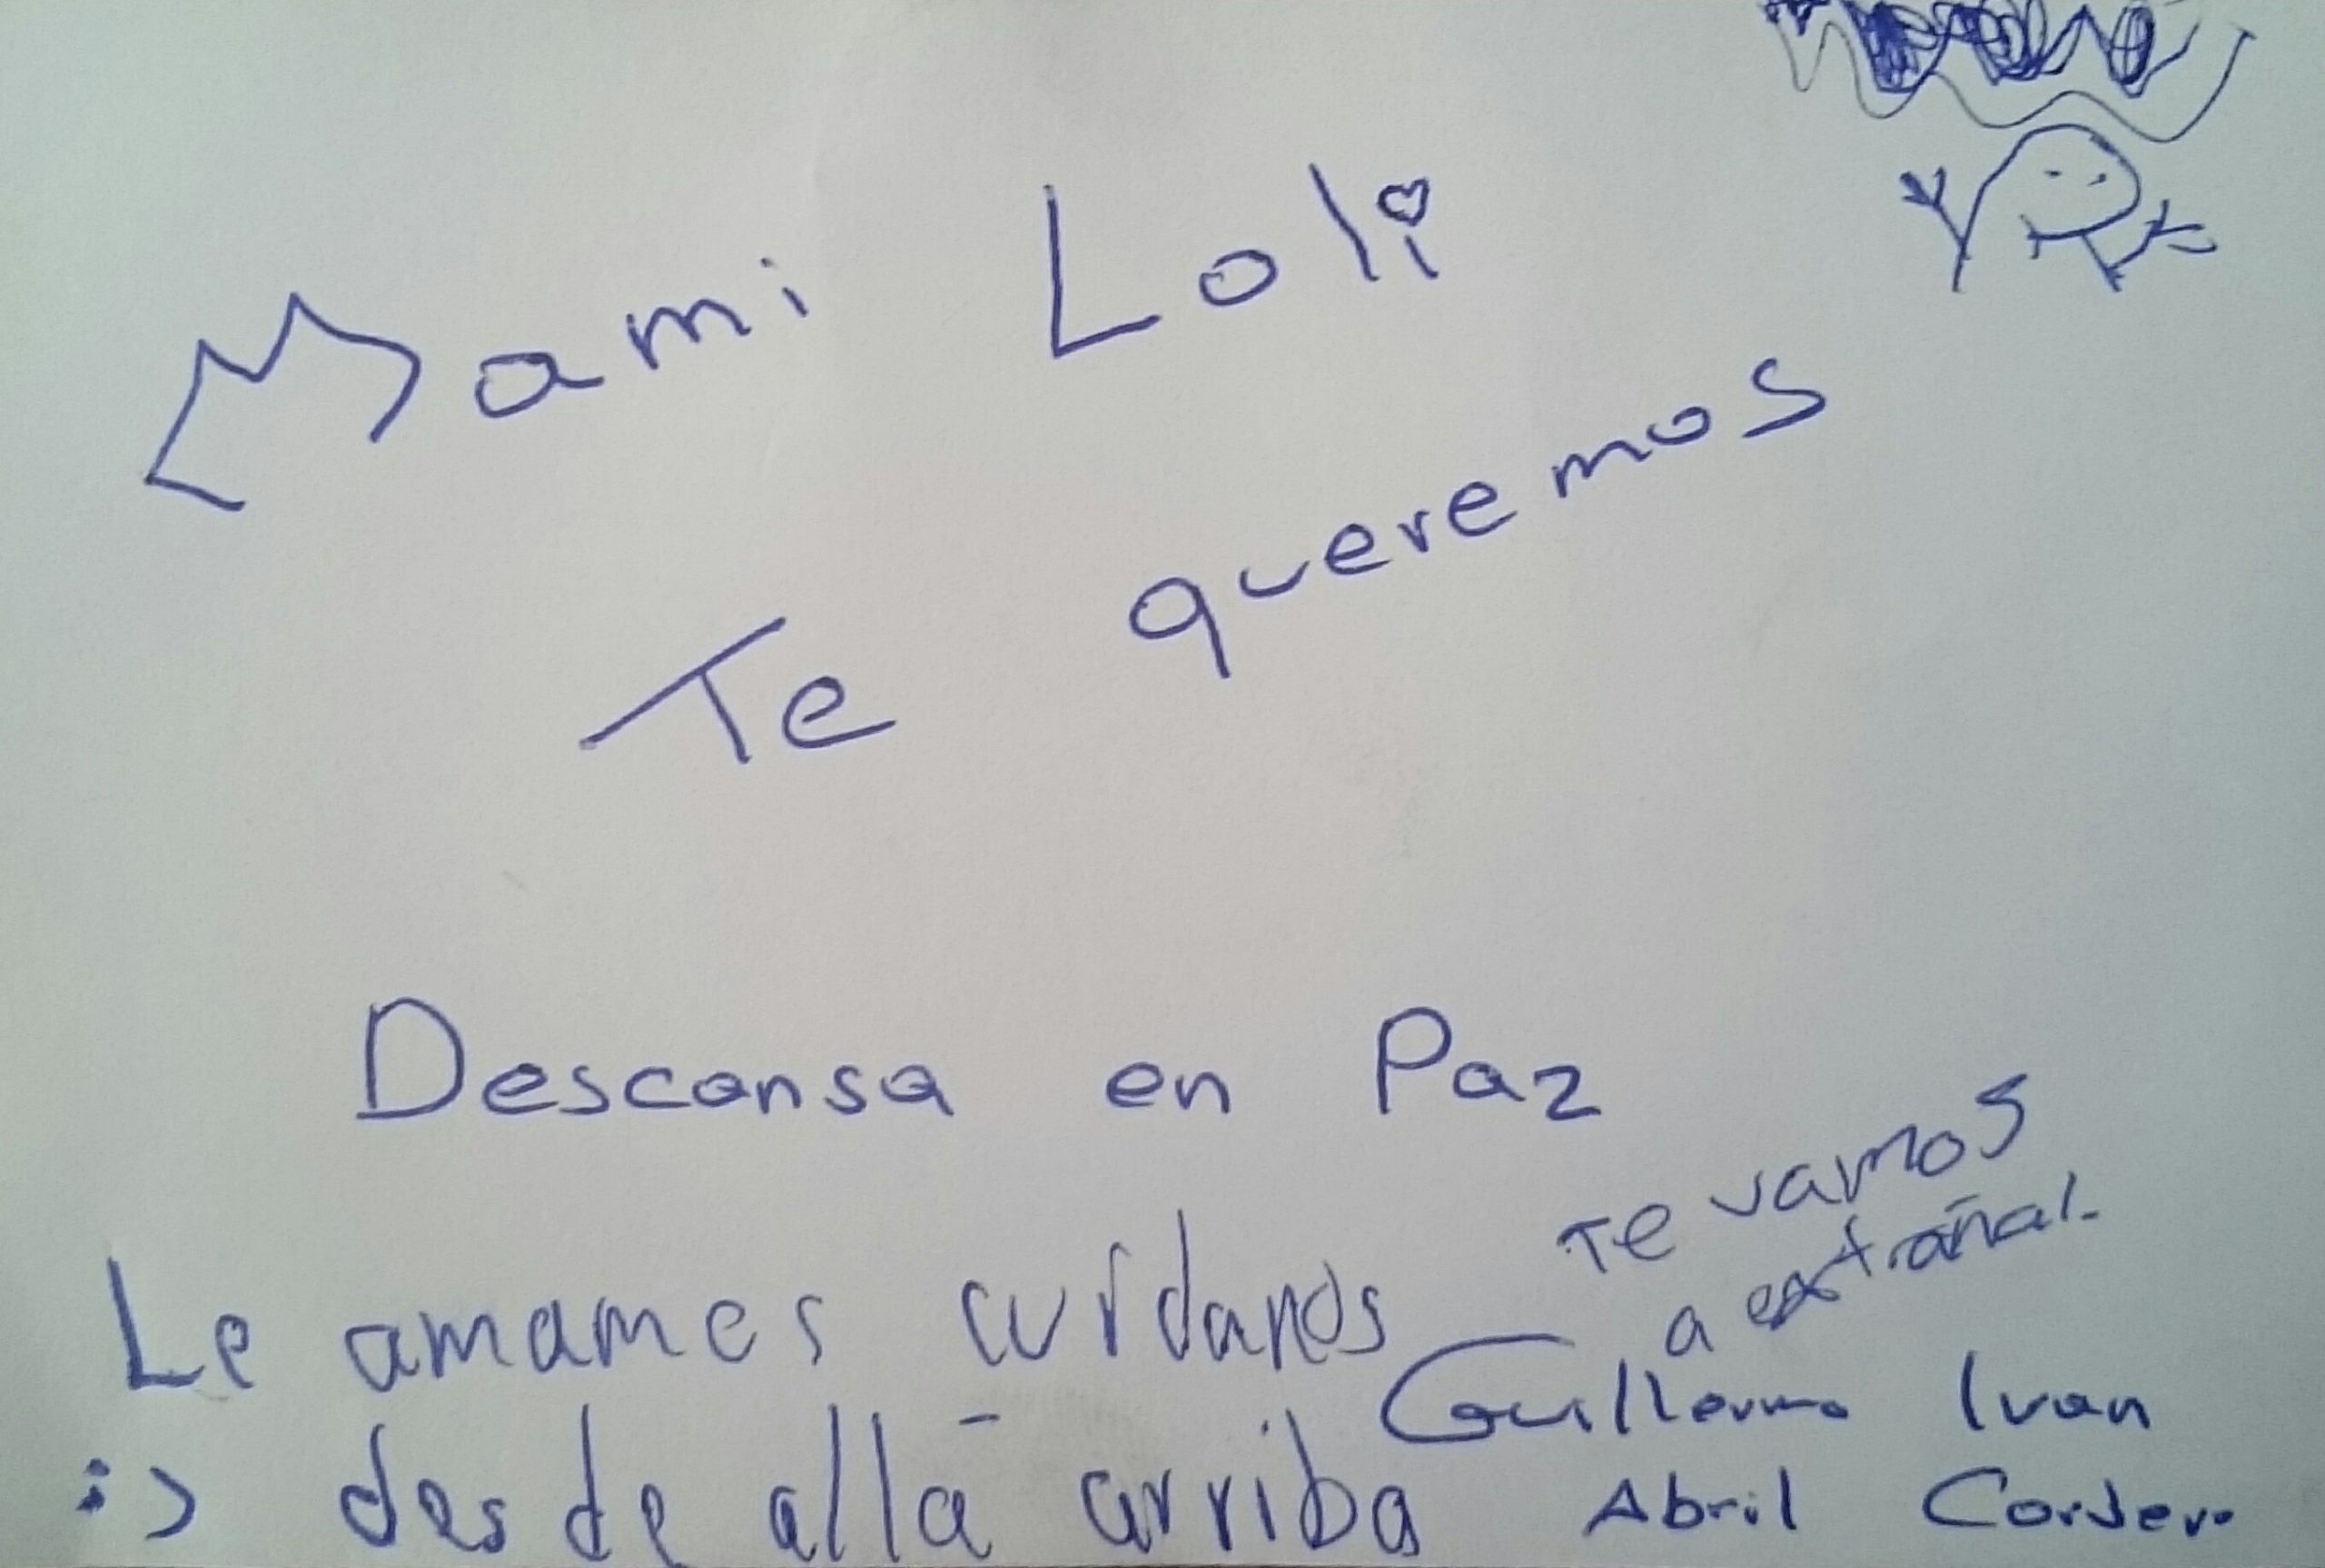 Mami Loli
Te queremos
Descansa en Paz
Te vamos
a extrañar
Le amamos cuidanos
:) desde allá arriba
Guillermo Ivan
Abril Cordero